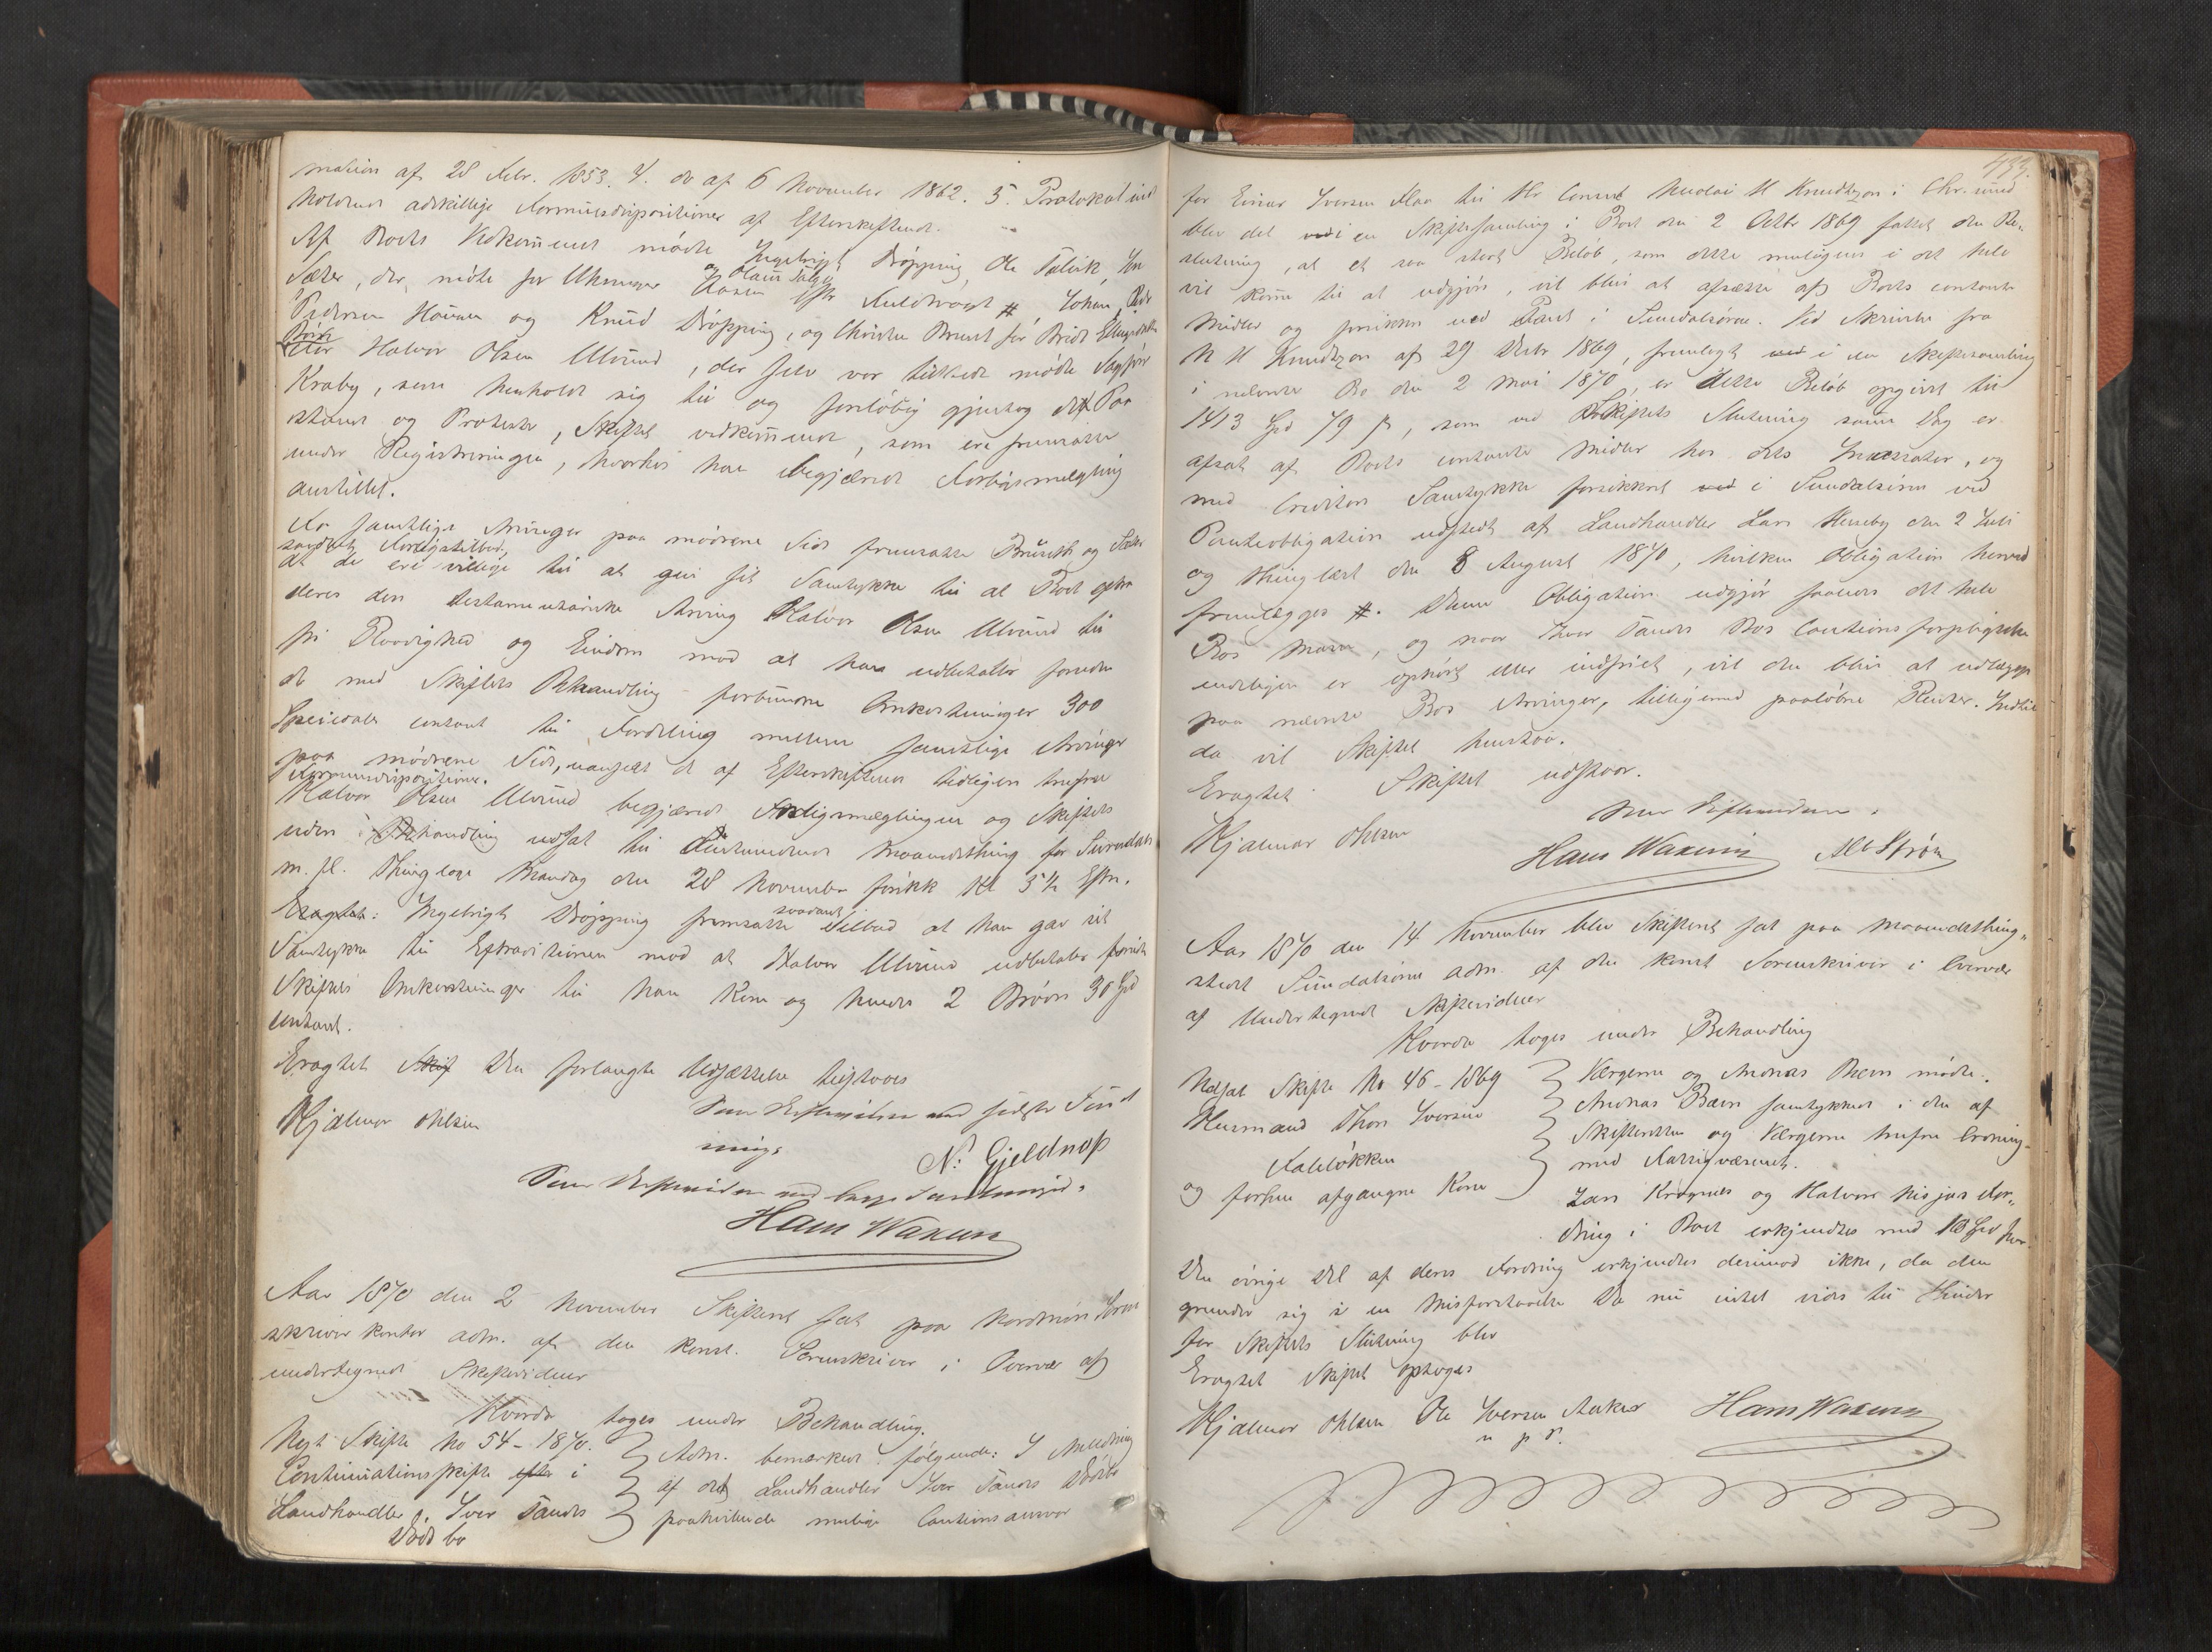 mation af 28 Febr. 1853. 4. do af 6 November 1862. 5. Protokol ind
holdende adskillige Formuesdispositioner af Efterskeftende.
Af Boets Vedkommende mødte Ingebrigt Drøpping, Ole
Sæter, der mødte for Fuldmagt #, Johan
Pedersen Houen og Knud Drøpping, og Christen for Brit
Brit
efter Halvor Olsen Ulvund, der selv var tilstede mødte Sagfører
Kraby, som henholdt sig til og foreløbig gjentog de Paa
stande og Protester, Skiftet vedkommende, som ere fremsatte
under Registreringen, hvorhos han begjærede Forligsmægling
anstillet.
Fra samtlige Arvinger paa mødrene Side fremsatte Brüseth og
saadant Forligstilbud,
at de ere villige til at give sit Samtykke til at Boet extra
deres den testamentariske Arving Halvor Olsen Ulvund til
fri Raadighed og Eiendom mod at han udbetaler foruden
de med Skiftets Behandling forbundne Omkostninger 300
Speciedaler contant til Fordeling mellem samtlige Arvinger
paa mødrene Side, uanseet de af Efterskeftende tidligere trufne
Formuesdispositioner.
Halvor Olsen Ulvund begjærede Forligsmæglingen og Skiftets
videre Behandling udsat til Maanedsthing for Surendals
m. fl. Thinglage Mandag den 28 November førstk Kl 3½ Eftm.
Eragtet: Ingebrigt Drøpping fremsatte saadant Tilbud at han gav sit
Samtykke til Extraditionen mod at Halvor Ulvund udbetaler foruden
Skiftets Omkostninger til hans Kone og hendes 2 Brødre 30 Spd
contant.
Eragtet Skif Den forlangte Udsættelse tilstaaes
Hjalmar Ohlsen
N: Gjeldnes
Hans Waxun
Aar 1870 den 2 November Skifteret sat paa Nordmøre Soren
skriverkontor adm. af den konst. Sorenskriver i Overvær af
undertegnede Skiftevidner
Hvorda toges under Behandling.
Nyt Skifte No 54-1870.
Continuationsskifte efter i
Landhandler Iver Sandes
Dødsbo
Adm. bemærkede følgende: I Anledning
af det Landhandler Iver Sandes Dødsbo
paahvilende mulige Cautionsansvar
433.
for Einar Iversen Flaa til Hr Consul Nicolai H Knudtzon i Chr.sund
blev det ved i en Skiftesamling i Boet den 2 Octbr 1869 fattet den Be„
slutning, at et saa stort Beløb, som dette muligens i det hele
vil komme til at udgjøre, vil blive at afsætte af Boets contante
Midler og forsikkre ved Pant i Sundalsøren. Ved Skrivelse fra
N H Knudtzon af 29 Decbr 1869, fremlagt ved i en Skiftesamling
i nævnte Bo den 2 Mai 1870, er dette Beløb opgivet til
1413 Spd 79 ß, som ved Skiftets Slutning samme Dag er
afsat af Boets contante Midler hos dets Incassator, og
med Creditors Samtykke forsikkret ved i Sundalsøren ved
Panteobligation udstedt af Landhandler Lars Hesseby den 2 Juli
og thinglæst den 8 August 1870, hvilken Obligation herved
fremlægges #. Denne Obligation udgjør saaledes det hele
Bos Masse, og naar Iver Sandes Bos Cautionsforpligtelse
endeligen er ophørt eller indfriet, vil den blive at udlægge
paa nævnte Bos Arvinger, tilligemed paaløbne Renter. Indtil
da vil Skiftet henstaa.
Eragtet Skiftet udstaar.
Hjalmar Ohlsen
Som Skiftevidner:
Hans Waxun
Aar 1870 den 14 November blev Skifteret sat paa Maanedsthing„
stedet Sundalsøren adm. af den konst Sorenskriver i Overvær
af Undertegnede Skiftevidner
Hvorda toges under Behandling
Udsat Skifte No 46-1869
Husmand Thore Iversen
Kalelökken
og forhen afgangne Kone
Værgerne og Andreas Bæen mødte.
Andreas Bæen samtykkede i den af
Skifteretten og Værgerne trufne Ordning
med Fattigvæsenet.
Lars Krognes og Halvor Nisjas For„
dring i Boet erkjendtes med 10 Spd hver.
Den øvrige Del af deres Fordring erkjendtes derimod ikke, da den
grunder sig i en Misforstaaelse Da nu intet vides til Hinder
for Skiftets Slutning blev
Eragtet Skiftet optoges
Hjalmar Ohlsen Ole Iversen Aaker Hans Waxun
m p P.